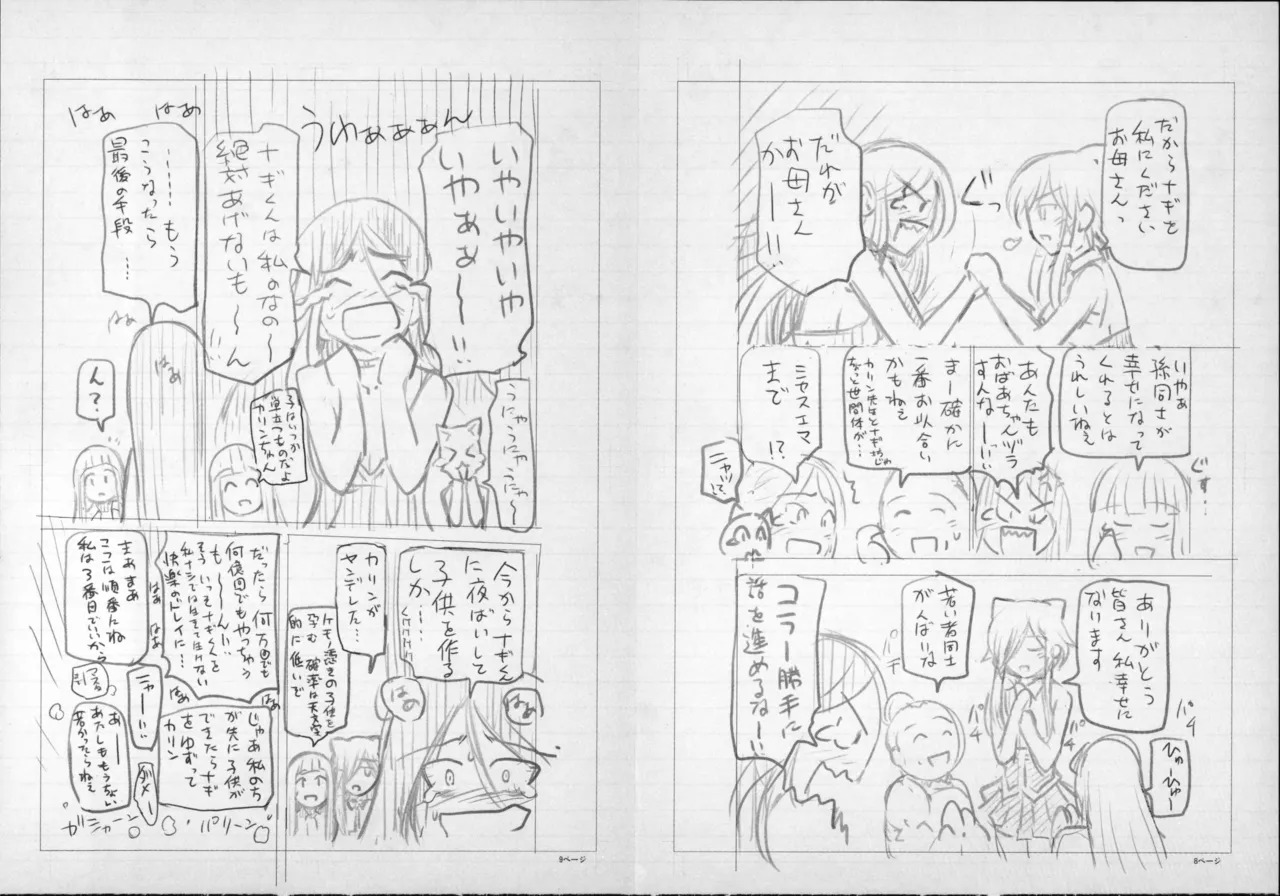 だからナギを
私にください
お母さんっ
ぐっ
だれが
お母さん
かーー!!
いやぁ
孫同士が
幸せになって
くれるとは
うれしいねぇ
ぐす・・
あんたも
おばあちゃんヅラ
すんなーーい!!
まー確かに
一番お似合い
かもねぇ
カリン先生とナギ坊じゃ
ちょっと世間体が…
ミヤスエマ
まで!?
ありがとう
皆さん私幸せに
なります
ひゅーひゅー
パチ
パチ
パチ
パチ
若い者同士
がんばいな
コラー勝手に
話を進めるなー!!
8ページ
いやいやいや
いやぁぁ〜!!
うわぁぁぁぁん
うにゃうにゃうにゃ〜
ナギくんは私のなの〜
絶対あげないも〜ん
子はいつか
巣立つものだよ
カリンちゃん
はぁ
はぁ
………もう
こうなったら
最後の手段
…
はぁ
はぁ
ん?
今からナギくん
に夜ばいして
子供を作る
しか…
はぁ
はぁ
カリンが
ヤンデレた…
ケモ憑きの子供を
孕む確率は天文学
的に低いで
だったら何万回でも
何億回でもやっちゃう
も〜〜ん!!
そういっそナギくんを
私ナシでは生きて生けない
快楽のドレイに…
はぁ
はぁ
はぁ
はぁ
じゃあ私のち
が先に子供が
できたらナギ
をゆずって
カリン
まぁまぁ
ここは順番にね
私は3番目でいいから
ニャー!!
ダメー
あーー
あたしももうちょい
若かったらねぇ
ガシャーン
パリーン
9ページ